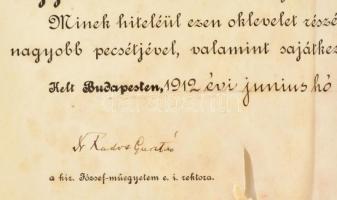 Minek hiteléül ezen oklevelet részé
nagyobb pecsétjével, valamint sajátkez
Kelt Budapesten, 1912 évi junius hó
Dr Rados Gusztáv
a kir. József-műegyetem e. i. rektora.